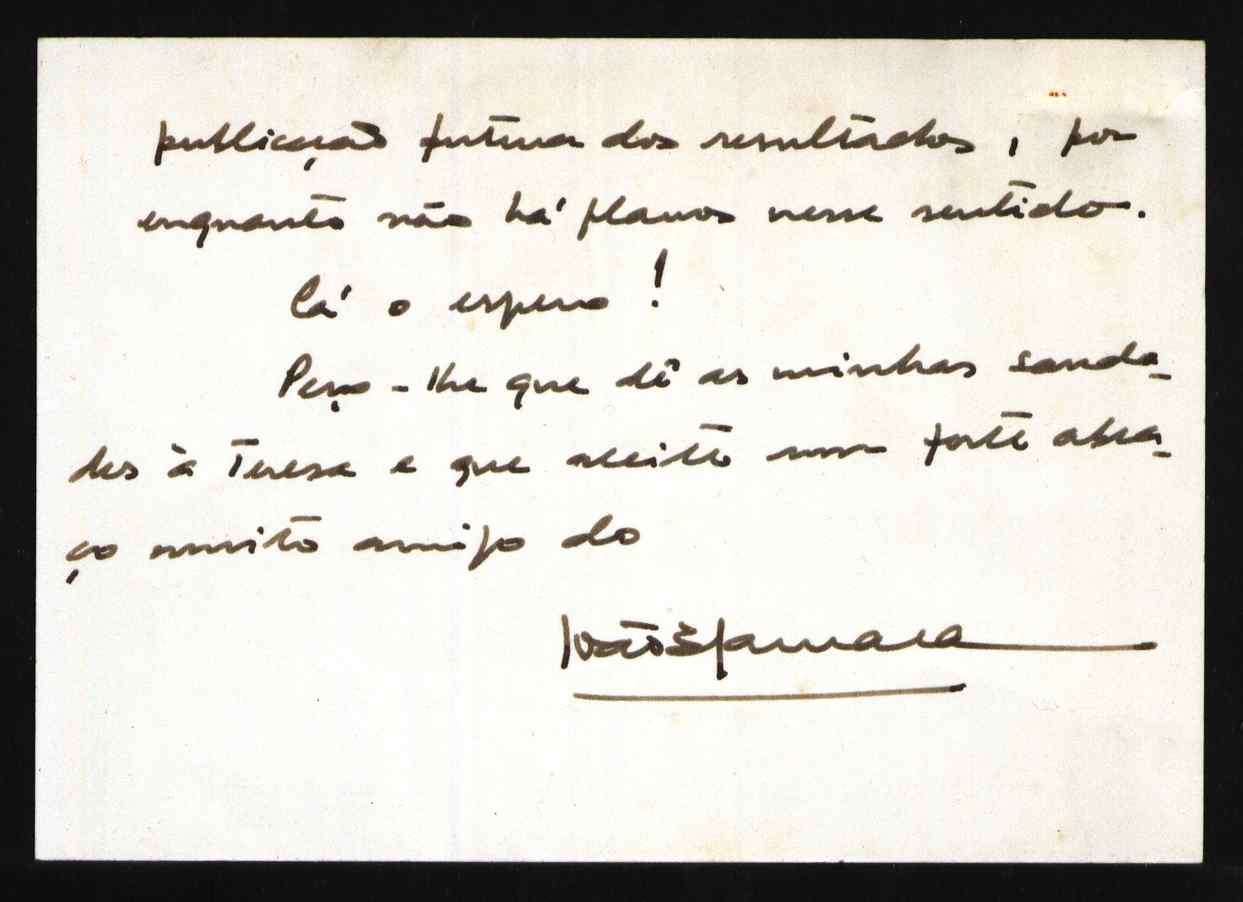 publicação futura dos resultados, por
enquanto não há planos nesse sentido.
Cá o espero!
Peço-lhe que dê as minhas sauda-
des à Teresa e que aceite um forte abra-
ço muito amigo do
João